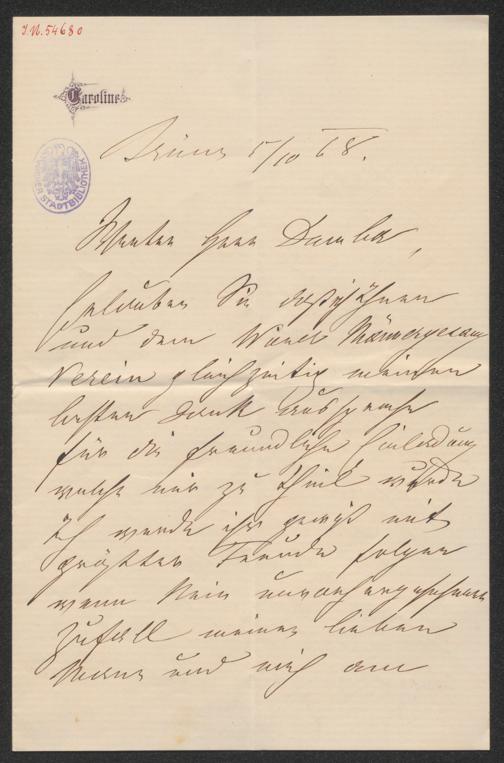 I.N. 54680
Caroline
STADTBIBLIOTHEK
Brünn 5/10 68.
Werter Herr Dumba,
Erlauben Sie daß ich Ihnen
und dem Wiener Männergesang
Verein gleichzeitig meinen
besten Dank ausspreche
für die freundliche Einladung
welche mir zu theil wurde
Ich werde ihr gewiß mit
größter Freude folgen
wenn kein unvorhergesehener
Zufall meinen lieben
Mann und mich am